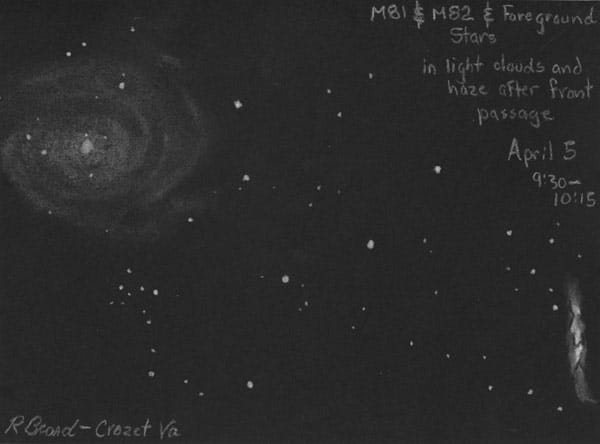 M81 & M82 & Foreground
Stars
in light clouds and
haze after front
passage
April 5
9:30—
10:15
R Broad - Crozet Va